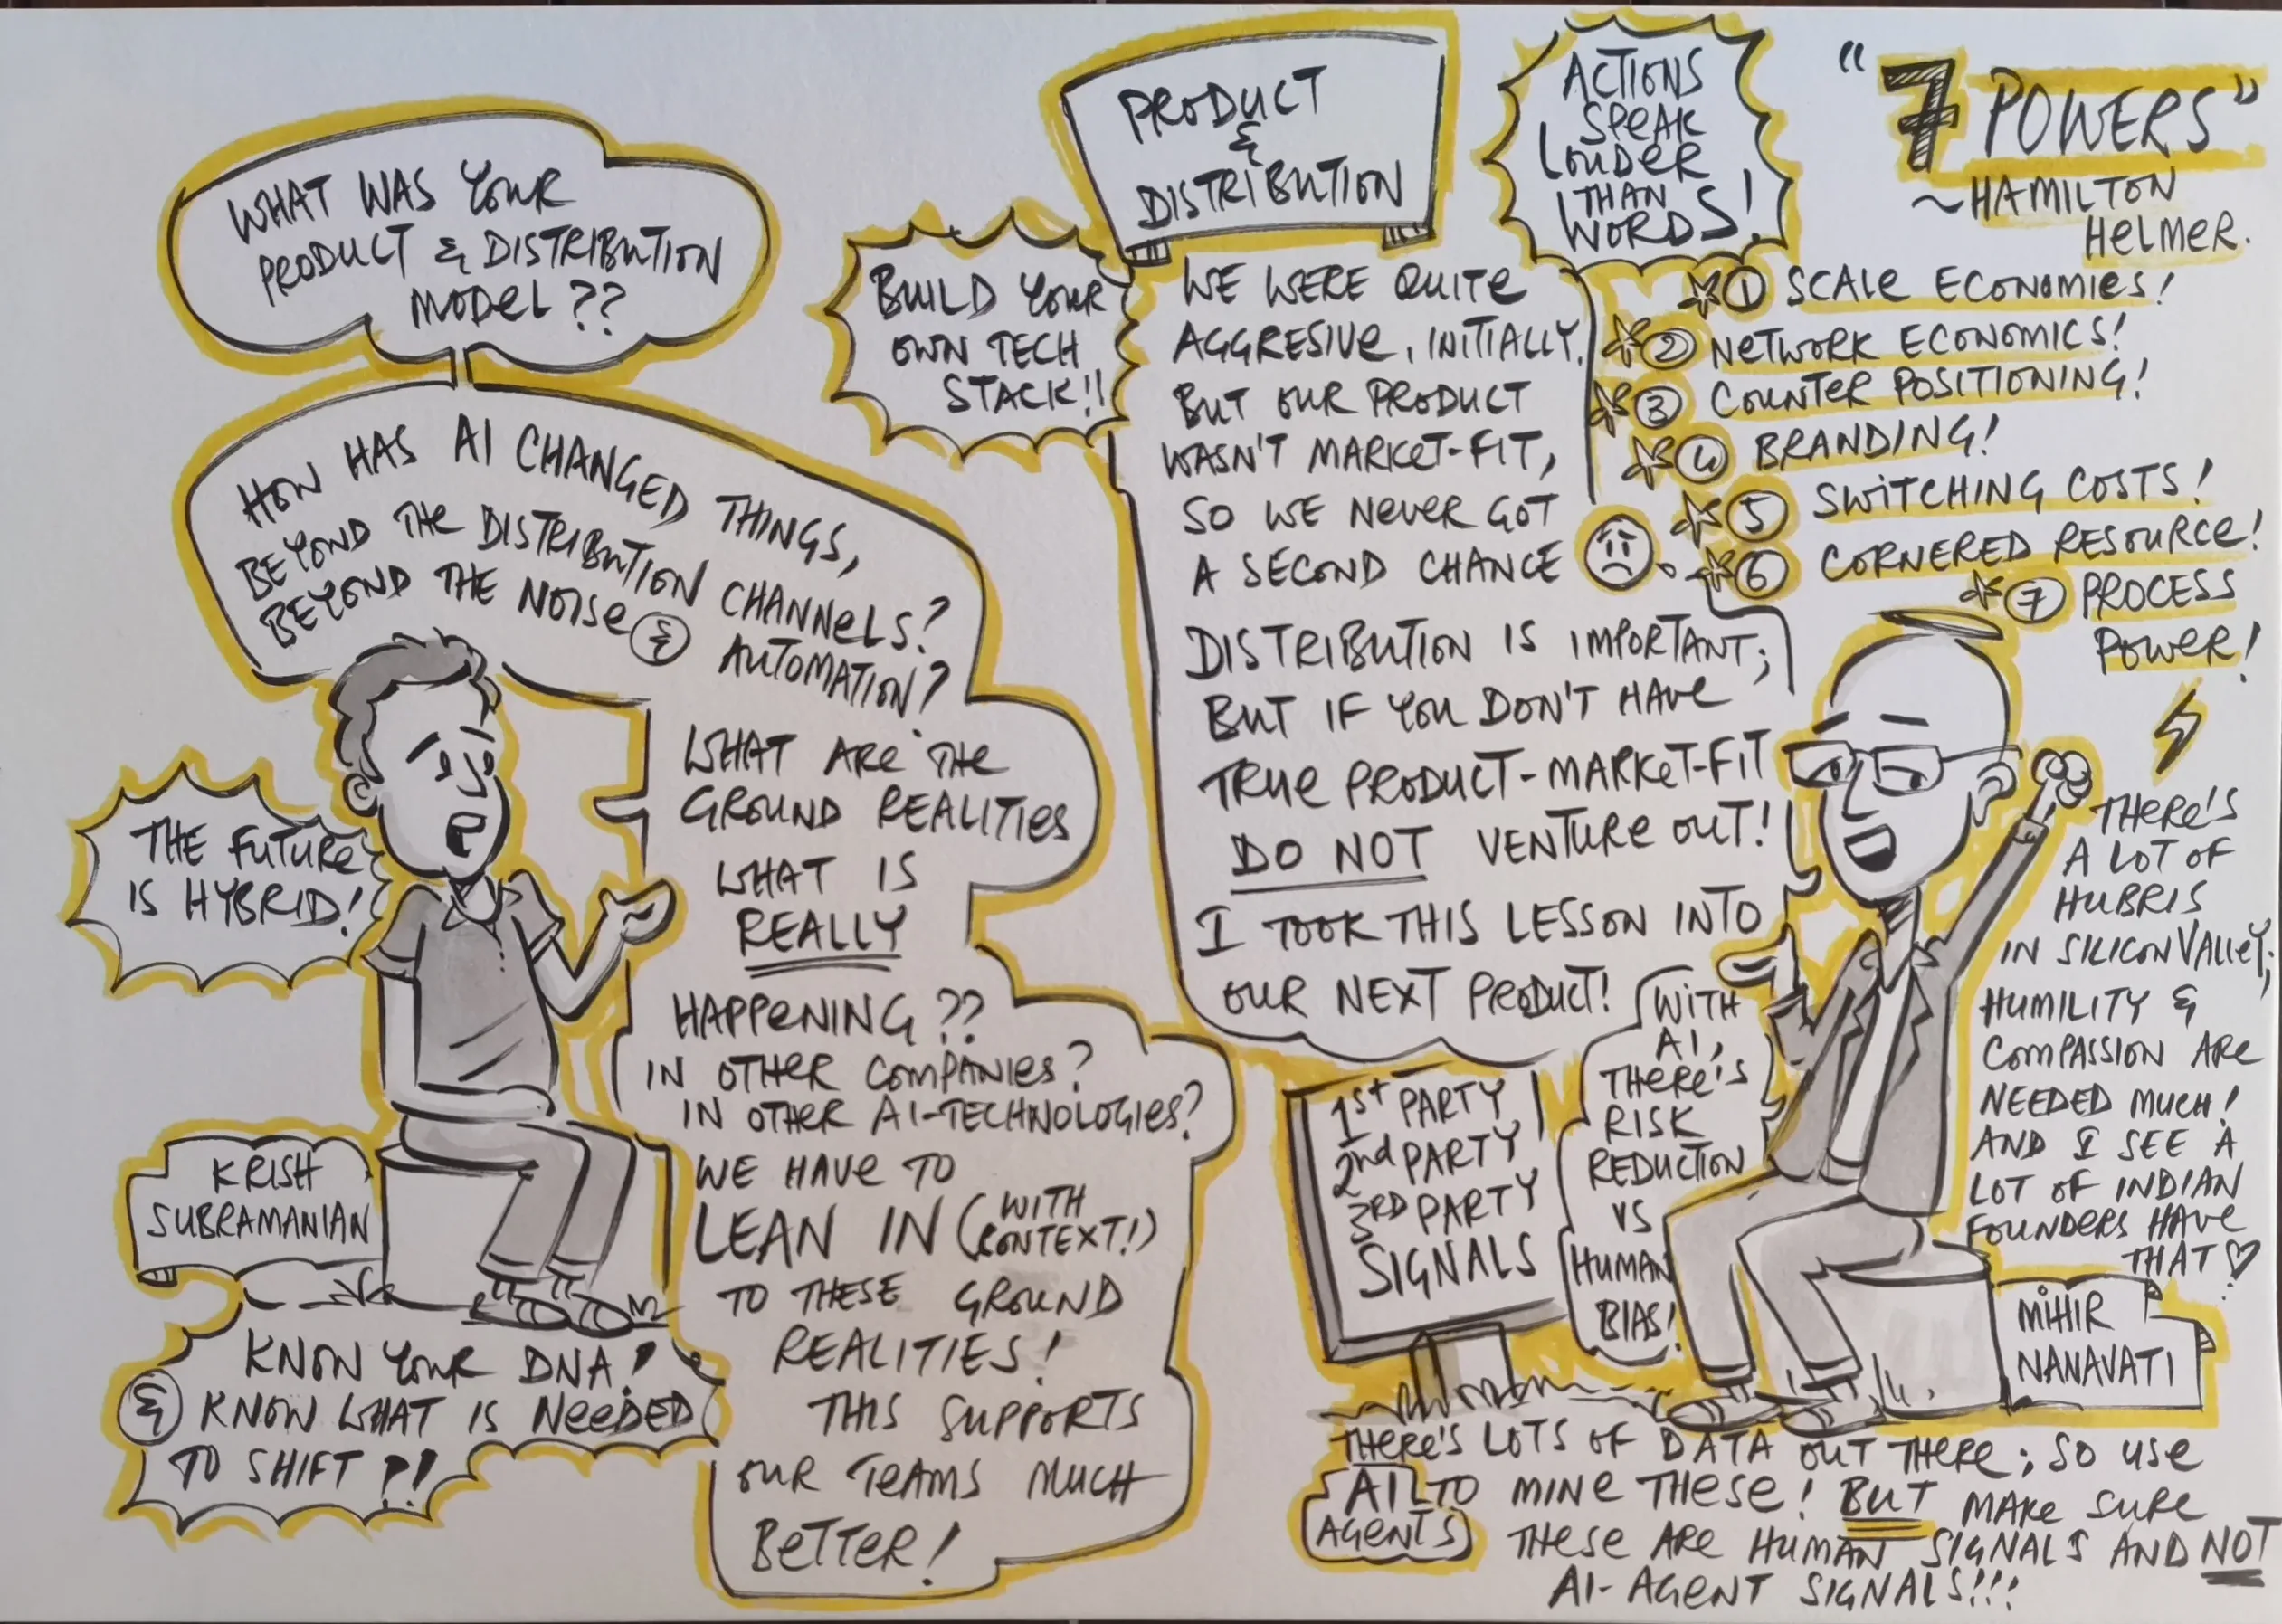 WHAT WAS YOUR
PRODUCT & DISTRIBUTION
MODEL??
HOW HAS AI CHANGED THINGS,
BEYOND THE DISTRIBUTION CHANNELS?
BEYOND THE NOISE & AUTOMATION?
WHAT ARE THE
GROUND REALITIES
WHAT IS
REALLY
HAPPENING??
IN OTHER COMPANIES?
IN OTHER AI-TECHNOLOGIES?
WE HAVE TO
LEAN IN (WITH
CONTEXT!)
TO THESE GROUND
REALITIES!
THIS SUPPORTS
OUR TEAMS MUCH
BETTER!
THE FUTURE
IS HYBRID!
KRISH
SUBRAMANIAN
KNOW YOUR DNA!
& KNOW WHAT IS NEEDED
TO SHIFT?!
BUILD YOUR
OWN TECH
STACK!!
PRODUCT
&
DISTRIBUTION
WE WERE QUITE
AGGRESIVE, INITIALLY,
BUT OUR PRODUCT
WASN'T MARKET-FIT,
SO WE NEVER GOT
A SECOND CHANCE
DISTRIBUTION IS IMPORTANT;
BUT IF YOU DON'T HAVE
TRUE PRODUCT-MARKET-FIT
DO NOT VENTURE OUT!
I TOOK THIS LESSON INTO
OUR NEXT PRODUCT!
ACTIONS
SPEAK
LOUDER
THAN
WORDS!
"7 POWERS"
~HAMILTON
HELMER.
1 SCALE ECONOMIES!
2 NETWORK ECONOMICS!
3 COUNTER POSITIONING!
4 BRANDING!
5 SWITCHING COSTS!
6 CORNERED RESOURCE!
7 PROCESS
POWER!
THERE'S
A LOT OF
HUBRIS
IN SILICON VALLEY;
HUMILITY &
COMPASSION ARE
NEEDED MUCH!
AND I SEE A
LOT OF INDIAN
FOUNDERS HAVE
THAT
1ST PARTY
2nd PARTY
3RD PARTY
SIGNALS
WITH
AI,
THERE'S
RISK
REDUCTION
VS
HUMAN
BIAS!
MIHIR
NANAVATI
THERE'S LOTS OF DATA OUT THERE; SO USE
AI TO MINE THESE! BUT MAKE SURE
AGENTS THESE ARE HUMAN SIGNALS AND NOT
AI-AGENT SIGNALS!!!